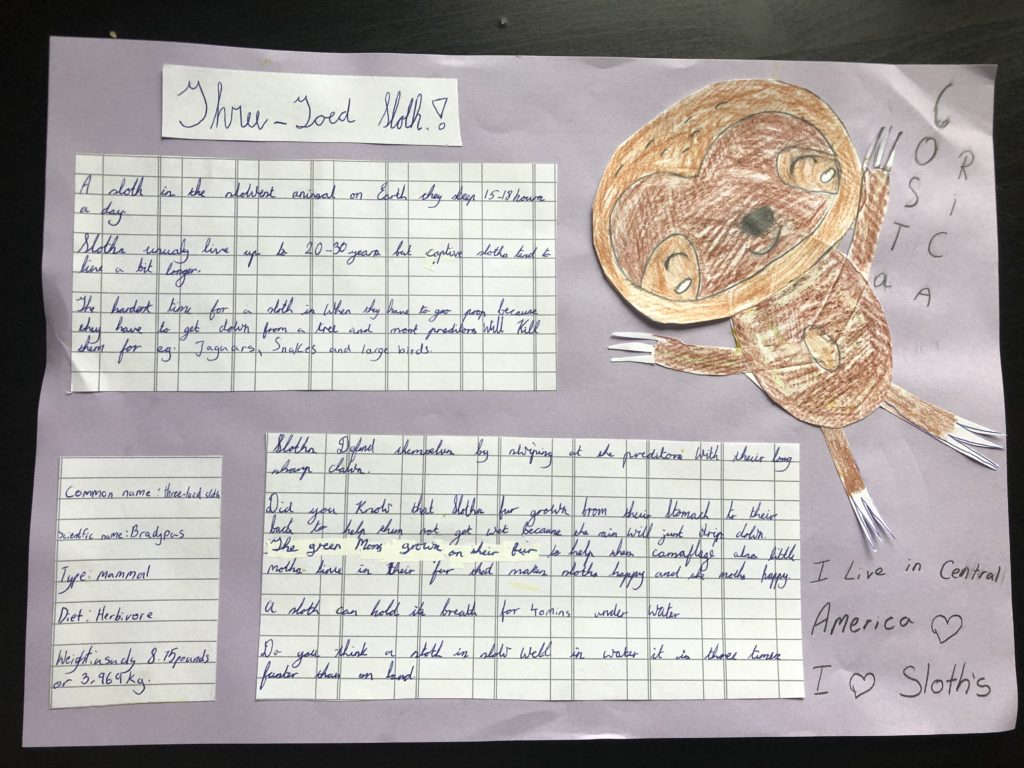 Three-Toed Sloth!
A sloth is the slowest animal on Earth they sleep 15-18 hours
a day.
Sloths usualy live up to 20-30 years but captive sloths tend to
live a bit longer.
The hardest time for a sloth is when they have to goo poop because
they have to get down from a tree and most preditors Will Kill
them for eg. Jaguars, Snakes and large birds.
COSTa
RICA
Common name: three-toed sloth
scientific name: Bradypus
Type: mammal
Diet: Herbivore
Weight: usualy 8.75 pounds
or 3.969 kg.
Sloths Defend themselves by swiping at the preditors With their long
sharp claws.
Did you Know that Sloths fur grows from their Stomach to their
back to help them not get wet because the rain will just drip down.
The green Moss grows on their fur to help them camaflage also little
moths live in their fur that makes sloths happy and the moths happy.
A sloth can hold its breath for 40mins under Water
Do you think a sloth is slow well in water it is three times
faster than on land.
I Live in Central
America ♡
I ♡ Sloth's